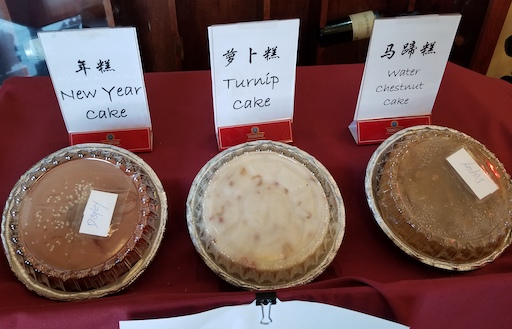 年糕
New Year
Cake
萝卜糕
Turnip
Cake
马蹄糕
Water
Chestnut
Cake